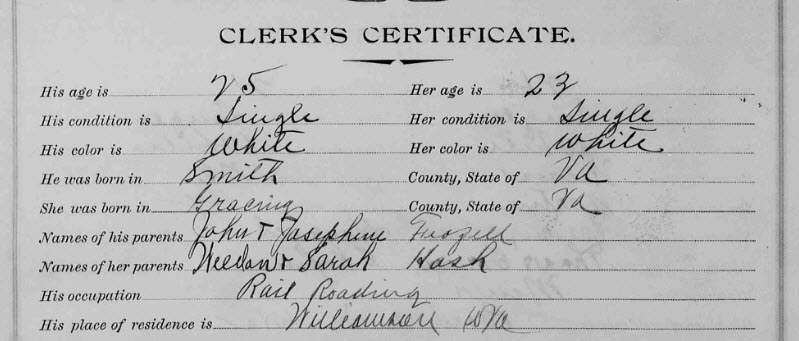 CLERK'S CERTIFICATE.
His age is 25 Her age is 23
His condition is Single Her condition is Single
His color is White Her color is White
He was born in Smith County, State of Va
She was born in County, State of Va
Names of his parents John & Josephine
Names of her parents Weedan & Sarah Hash
His occupation Rail Roading
His place of residence is Williamson WVa